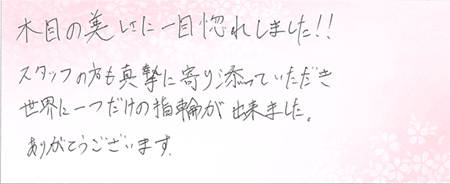 木目の美しさに一目惚れしました!!
スタッフの方も真摯に寄り添っていただき
世界に一つだけの指輪が出来ました。
ありがとうございます。